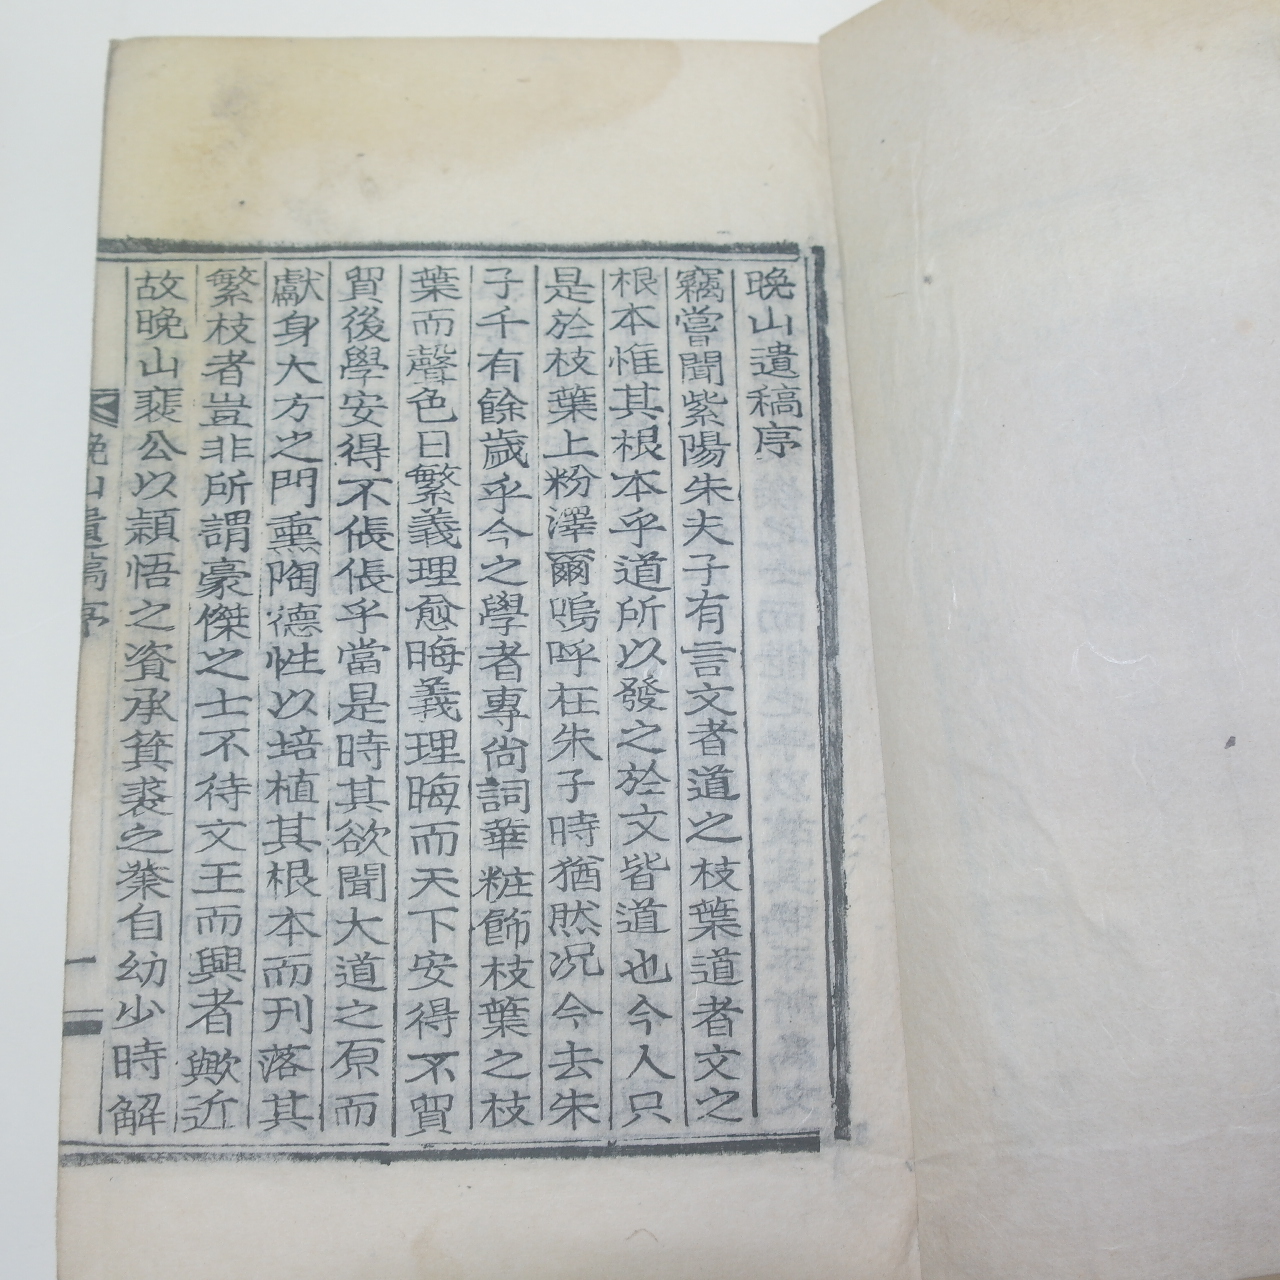 晩山遺稿序
竊嘗聞紫陽朱夫子有言文者道之枝葉道者文之
根本惟其根本乎道所以發之於文皆道也今人只
是於枝葉上粉澤爾嗚呼在朱子時猶然况今去朱
子千有餘歲乎今之學者專尙詞華粧餙枝葉之枝
葉而聲色日繁義理愈晦義理晦而天下安得不貿
貿後學安得不倀倀乎當是時其欲聞大道之原而
獻身大方之門熏陶德性以培植其根本而刋落其
繁枝者豈非所謂豪傑之士不待文王而興者歟近
故晩山裴公以穎悟之資承箕裘之業自幼少時解
晩山遺稿序
一